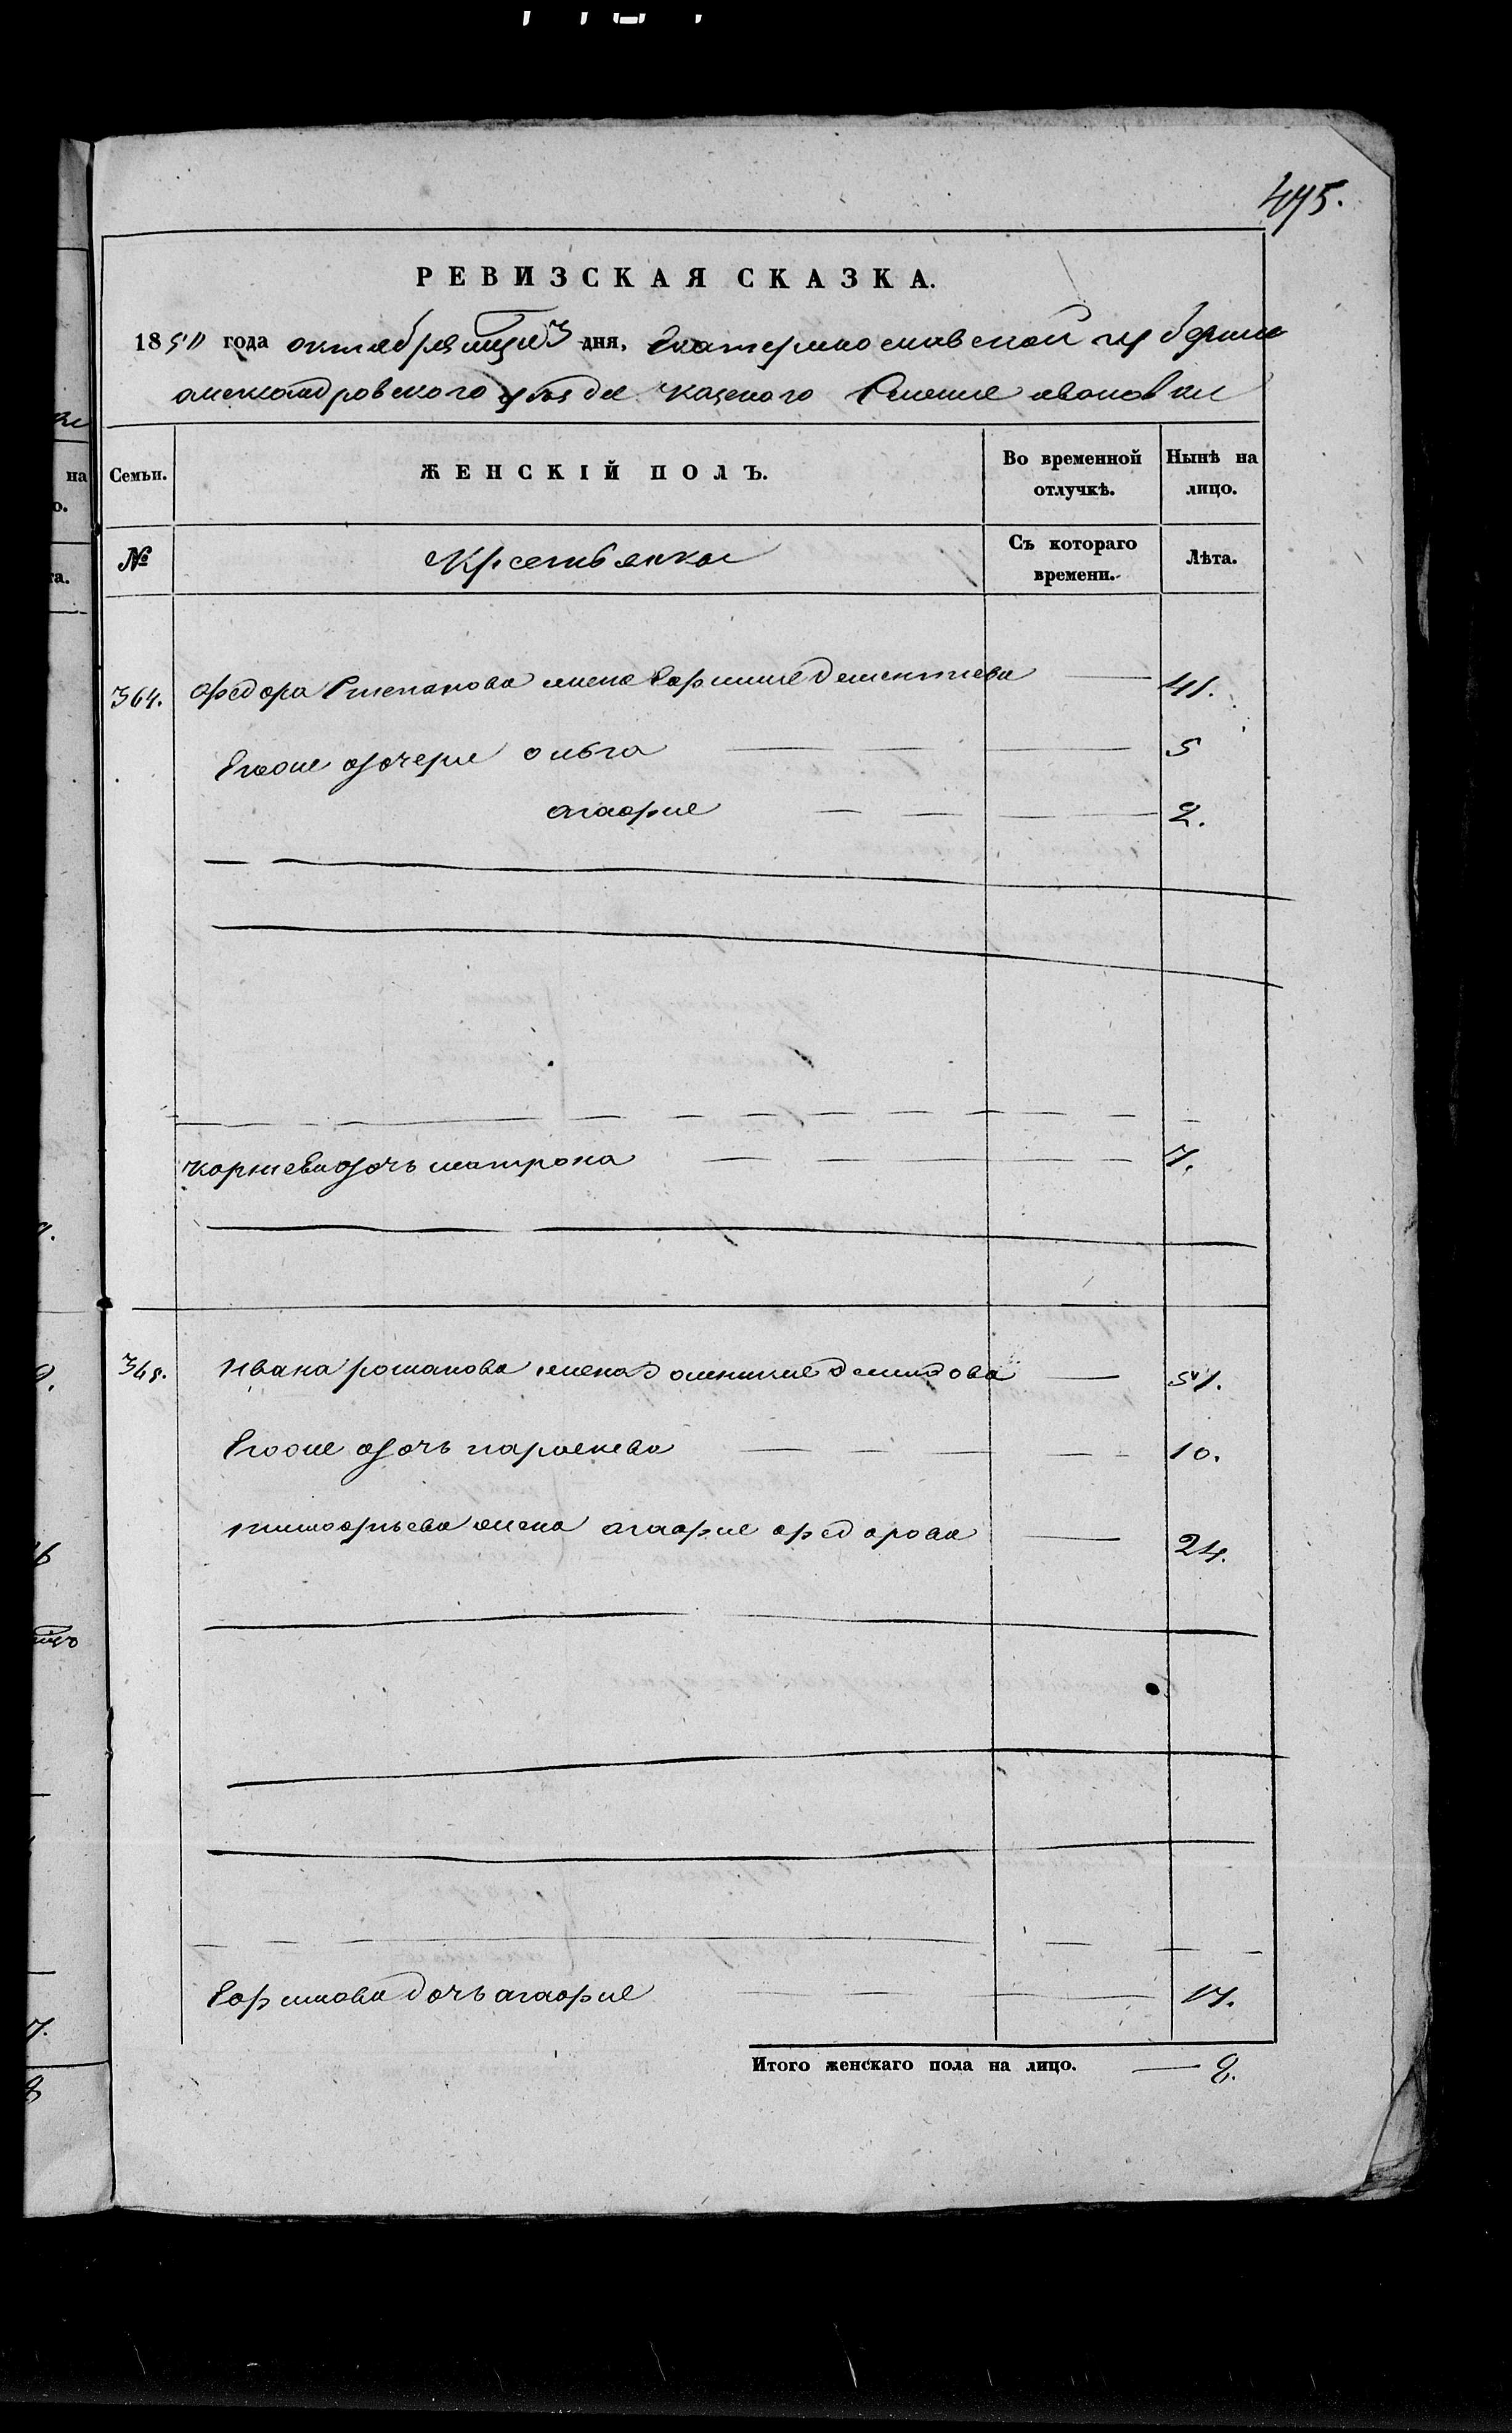 495.
РЕВИЗСКАЯ СКАЗКА.
1850 года октября мца 3 дня. Екатеринославской губернии
александровского уезда казеного Селения ивановки
Семьи. ЖЕНСКІЙ ПОЛЪ. Во временной отлучкѣ. Нынѣ на лицо.
№ Крестьянки Съ котораго времени. Лѣта.
364. Федора Степанова жена Ефимия дементиева 41.
Егоже дочери ольга 5
агафия 2.
корнева дочь матрона 7.
365. Ивана романова жена домникия демидова 51.
Егоже дочь параскева 10.
тимофиева жена агафия федорова 24.
Ефимова дочь агафия 17.
Итого женскаго пола на лицо. 8.